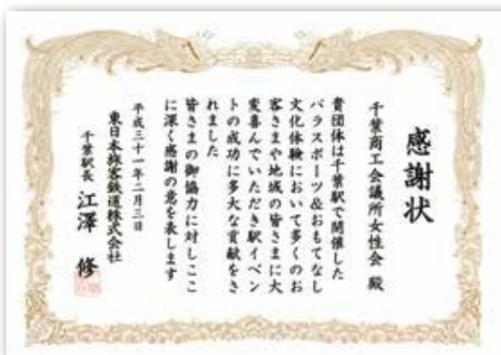 感謝状
千葉商工会議所女性会 殿
貴団体は千葉駅で開催した
パラスポーツ&おもてなし
文化体験において多くのお
客さまや地域の皆さまに大
変喜んでいただき駅イベン
トの成功に多大な貢献をさ
れました
皆さまの御協力に対しここ
に深く感謝の意を表します
平成三十一年二月三日
東日本旅客鉄道株式会社
千葉駅長 江澤 修